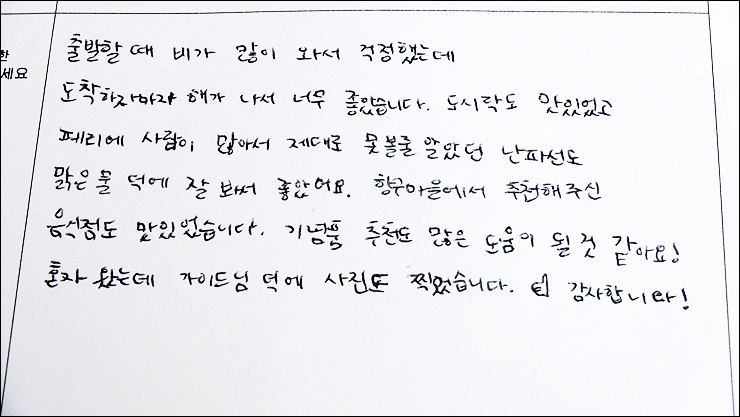 한
세요
출발할 때 비가 많이 와서 걱정했는데
도착하자마자 해가 나서 너무 좋았습니다. 도시락도 맛있었고
페리에 사람이 많아서 제대로 못볼줄 알았던 난파선도
맑은 물 덕에 잘 봐서 좋았어요. 항구마을에서 추천해주신
음식점도 맛있었습니다. 기념품 추천도 많은 도움이 될 것 같아요!
혼자 왔는데 가이드님 덕에 사진도 찍었습니다. 감사합니다!